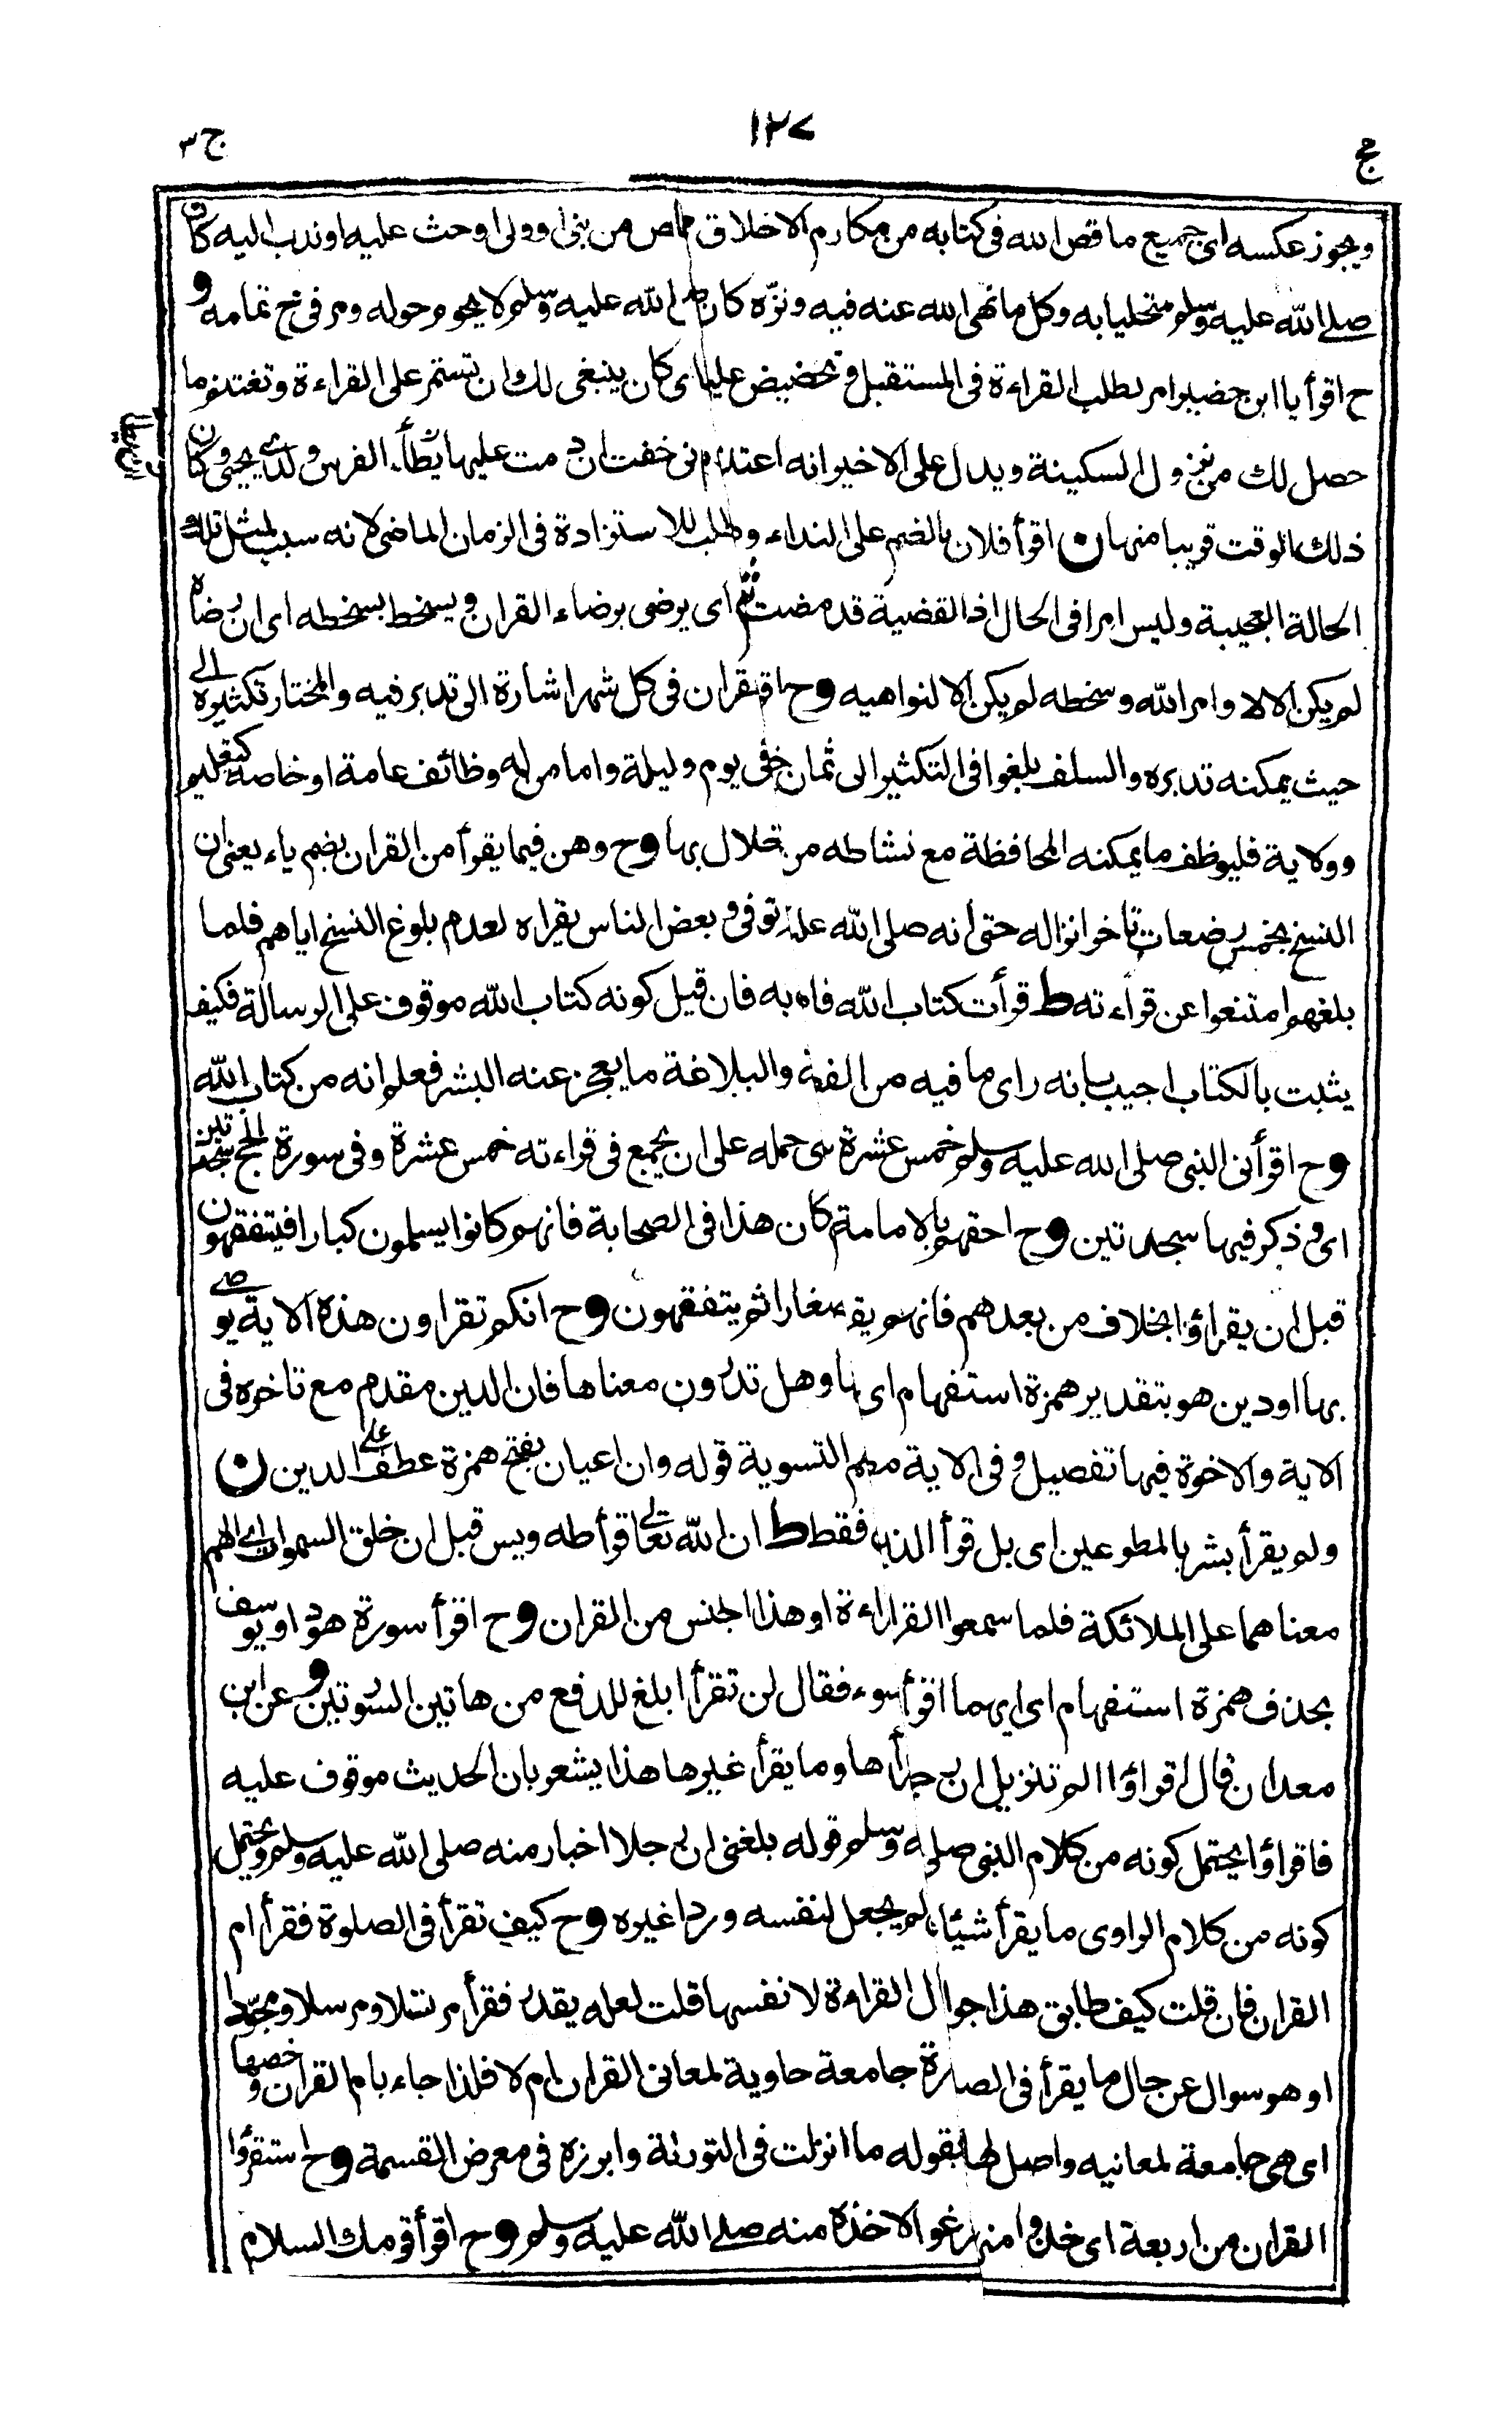 مج ١٢٧ ج ٣
ويجوز عكسه اى جميع ما قص الله فى كتابه من مكارم الاخلاق مما قص من نبى او ولى او حث عليه او ندب اليه كان
صلى الله عليه وسلم متحليا به وكل ما نهى الله عنه فيه ونزّه كان صلى الله عليه وسلم لا يحوم حوله ومر فى خ تمامه و
ح اقرأ يا ابن حضير امر بطلب القراءة فى المستقبل وتحضيض عليها اى كان ينبغى لك ان تستمر على القراءة وتغتنم ما
حصل لك من نزول السكينة ويدل على الاخير انه اعتذر بانى خفت ان دمت عليها يطأ الفرس ولدى يحيى وكان
ذلك الوقت قريبا منها ن اقرأ فلان بالضم على النداء وطلب للاستزادة فى الزمان الماضى لانه سبب لمثل تلك
الحالة العجيبة وليس امرا فى الحال اذ القضية قد مضت ثم اى يرضى برضاء القران ويسخط بسخطه اى ان رضاه
لم يكن الا لاوامر الله وسخطه لم يكن الا لنواهيه وح اقرأ القران فى كل شهر اشارة الى تدبر فيه والمختار تكثيره الى
حيث يمكنه تدبره والسلف بلغوا فى التكثير الى ثمان فى يوم وليلة واما من له وظائف عامة او خاصة كتعليم
وولاية فليوظف ما يمكنه المحافظة مع نشاطه من اخلال بها وح وهن فيما يقرأ من القران بضم ياء يعنى ان
النسخ بخمس رضعات تأخر انزاله حتى أنه صلى الله عليه توفى وبعض الناس يقراه لعدم بلوغ النسخ اياهم فلما
بلغهم امتنعوا عن قراءته ط قرأت كتاب الله فامن به فان قيل كونه كتاب الله موقوف على الرسالة فكيف
يثبت بالكتاب اجيب بانه راى ما فيه من والبلاغة ما يعجز عنه البشر فعلم انه من كتاب الله
وح اقرأنى النبى صلى الله عليه وسلم خمس عشرة اى حمله على ان يجمع فى قراءته خمس عشرة وفى سورة الحج سجدتين
اى وذكر فيها سجدتين وح احقهم بالامامة كان هذا فى الصحابة فانهم كانوا يسلمون كبارا فيتفقهون
قبل ان يقراؤا بخلاف من بعدهم فانهم صغارا ثم يتفقهون وح انكم تقراون هذه الاية يوصى
بها او دين هو بتقدير همزة استفهام اى وهل تدرون معناها فان الدين مقدم مع تاخره فى
الاية والاخوة فيها تفصيل وفى الاية التسوية قوله وان اعيان بفتح همزة عطف على الدين ن
ولم يقرأ بشر بالمطوعين اى بل قرأ الذين فقط ط ان الله تعالى قرأ طه ويس قبل ان خلق السموات اى افهم
معناهما على الملائكة فلما سمعوا القراءة او هذا الجنس من القران وح اقرأ سورة هود او يوسف
بحذف همزة استفهام اى ايهما اقرأ لسوء فقال لن تقرأ ابلغ للدفع من هاتين السورتين وعن ابن
معدان قال اقراؤا الم تنزيل ان رجلا ها وما يقرأ غيرها هذا يشعر بان الحديث موقوف عليه
فاقراؤا يحتمل كونه من كلام النبى صلى وسلم قوله بلغنى ان رجلا اخبار منه صلى الله عليه وسلم ويحتمل
كونه من كلام الراوى ما يقرأ شيئا لم يجعل لنفسه وردا غيره وح كيف تقرأ فى الصلوة فقرأ ام
القران فان قلت كيف طابق هذا جوابا القراءة لا نفسها قلت لعله يقدر فقرأ مرتلا ومرسلا ومجوّدا
او هو سوال عن حال ما يقرأ فى الصلوة جامعة حاوية لمعانى القران ام لا فلذا جاء بام القران وخصها
اى هى جامعة لمعانيه واصل لها بقوله ما انزلت فى التورئة وابرزه فى معرض القسمة وح استقرؤا
القران من اربعة اى خذوا منهم الاخذه منه صلى الله عليه وسلم وح اقرأ قومك السلام